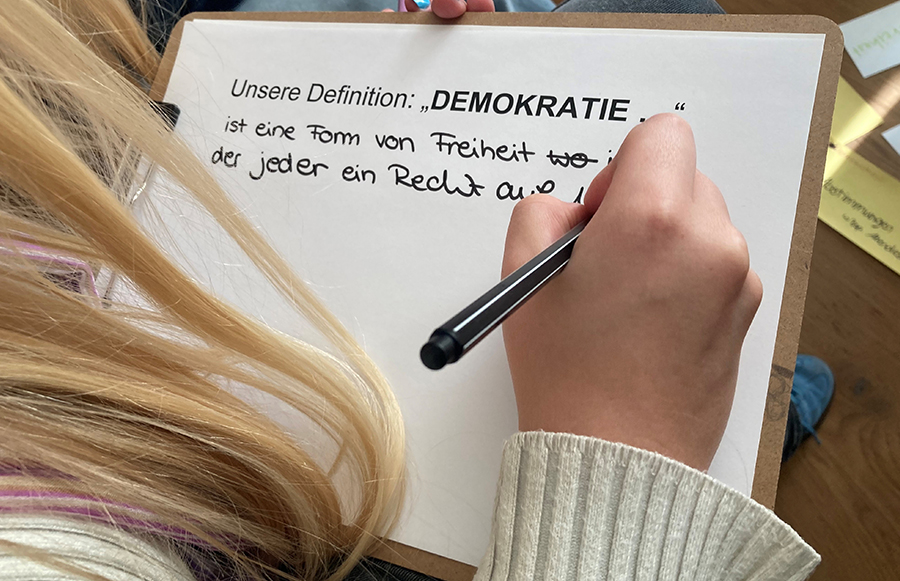 Unsere Definition: „DEMOKRATIE ..."
ist eine Form von Freiheit wo
der jeder ein Recht auf